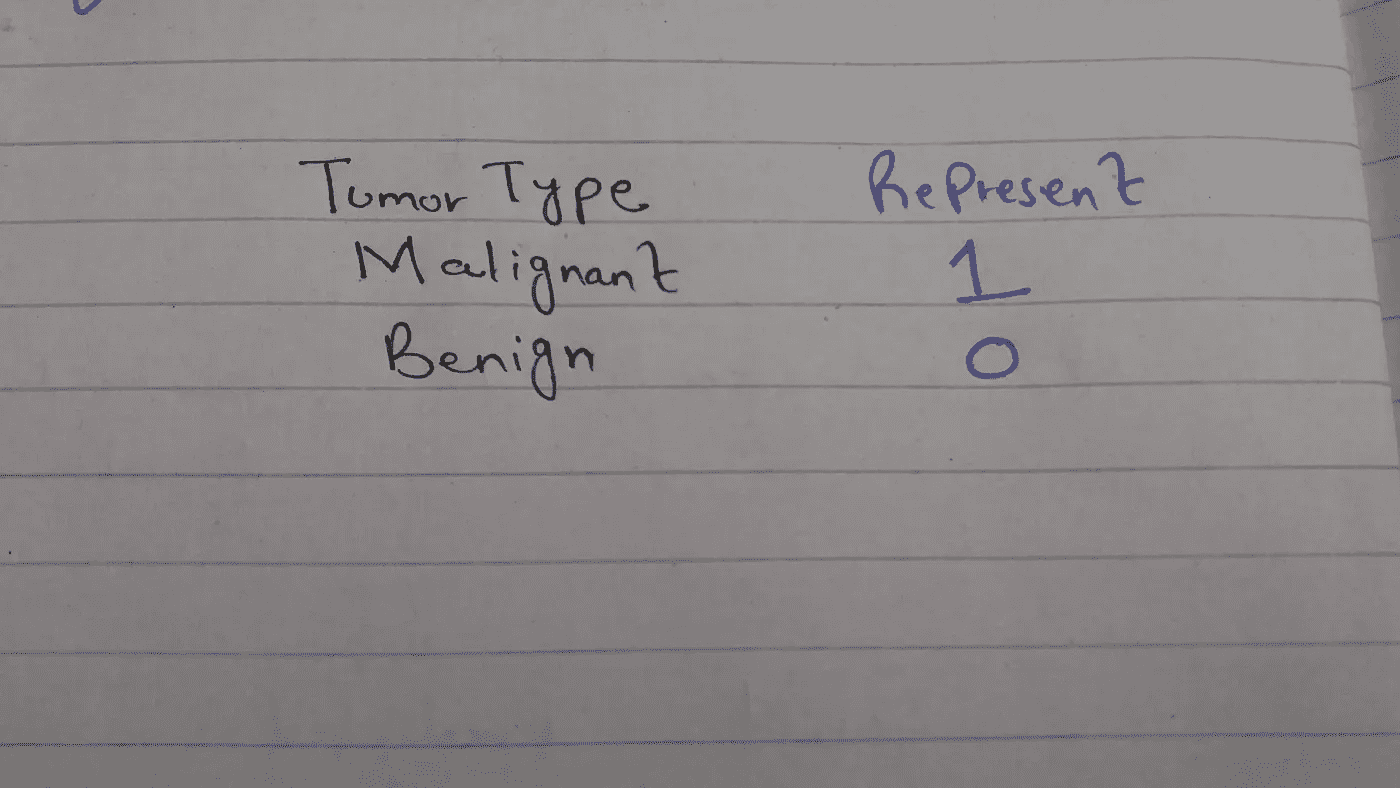 Tumor Type RePresent
Malignant 1
Benign 0